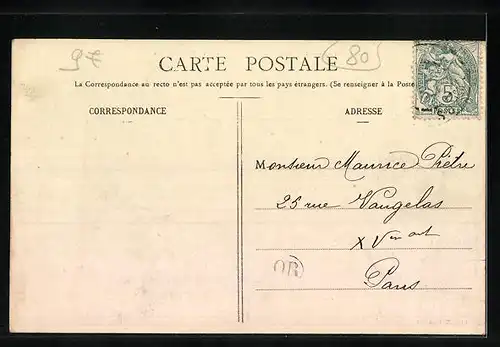 9€
(80)
CARTE POSTALE
La Correspondance au recto n'est pas acceptée par tous les pays étrangers. (Se renseigner à la Poste
CORRESPONDANCE
ADRESSE
Monsieur Maurice Piètre
25 rue Vaugelas
XV me arrt
Paris
OR
5